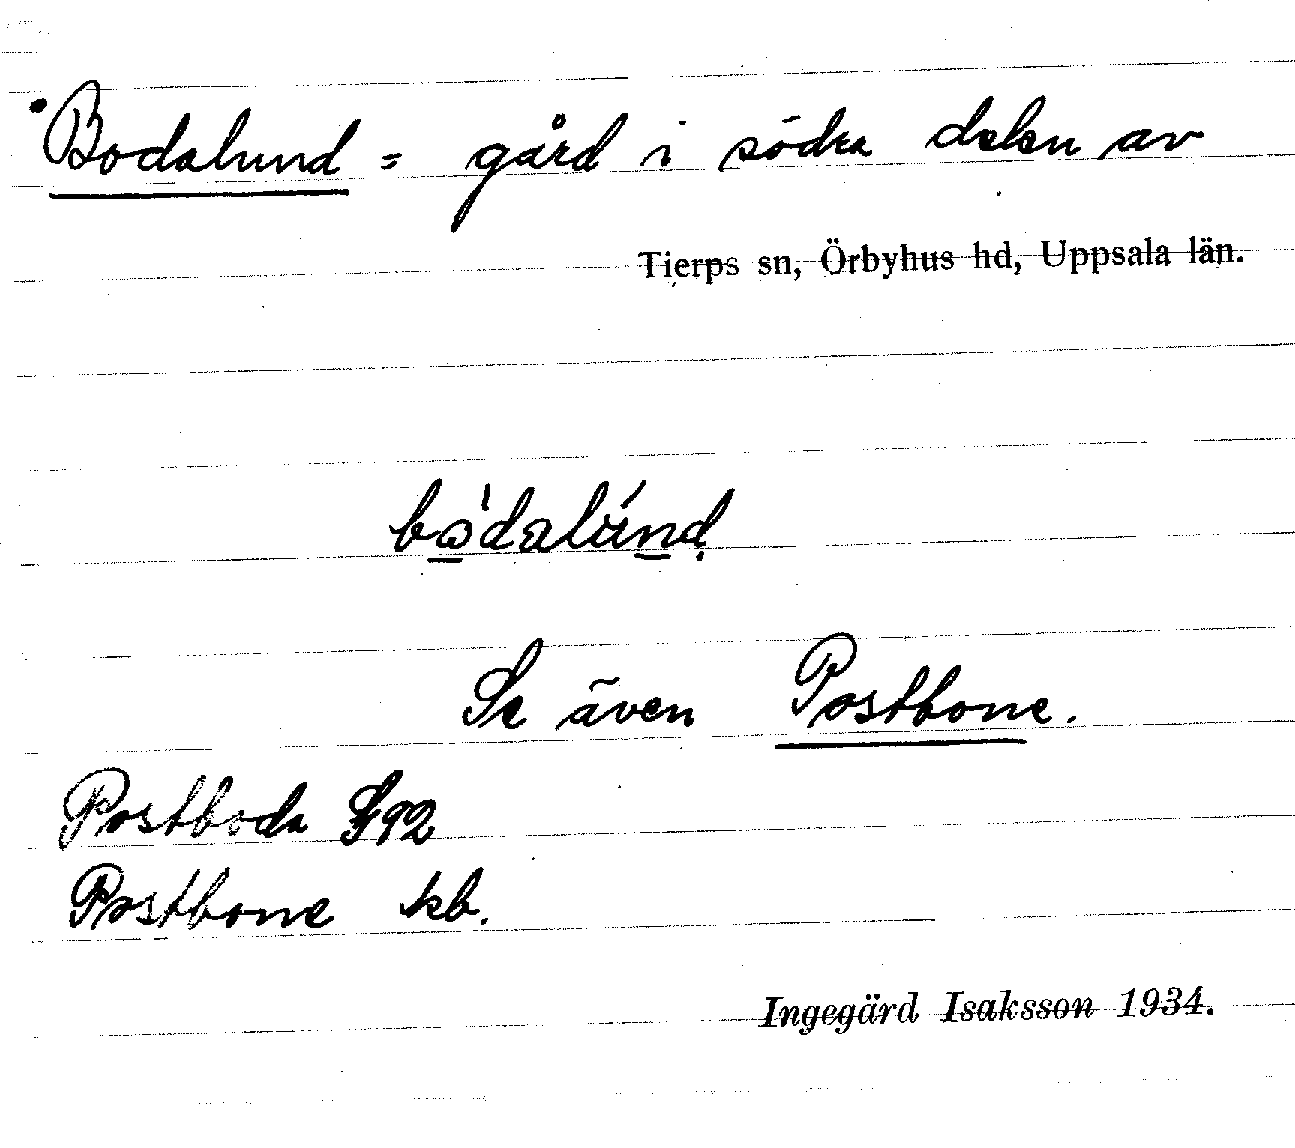 Bodalund = gård i södra delen av
Tierps sn, Örbyhus hd, Uppsala län.
Se även Postbone.
Postboda
Postbone kb.
Ingegärd Isaksson 1934.